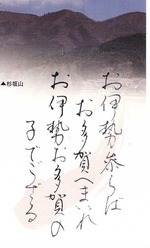 ▲杉坂山
お伊勢参らば
お多賀へまいれ
お伊勢お多賀の
子でござる